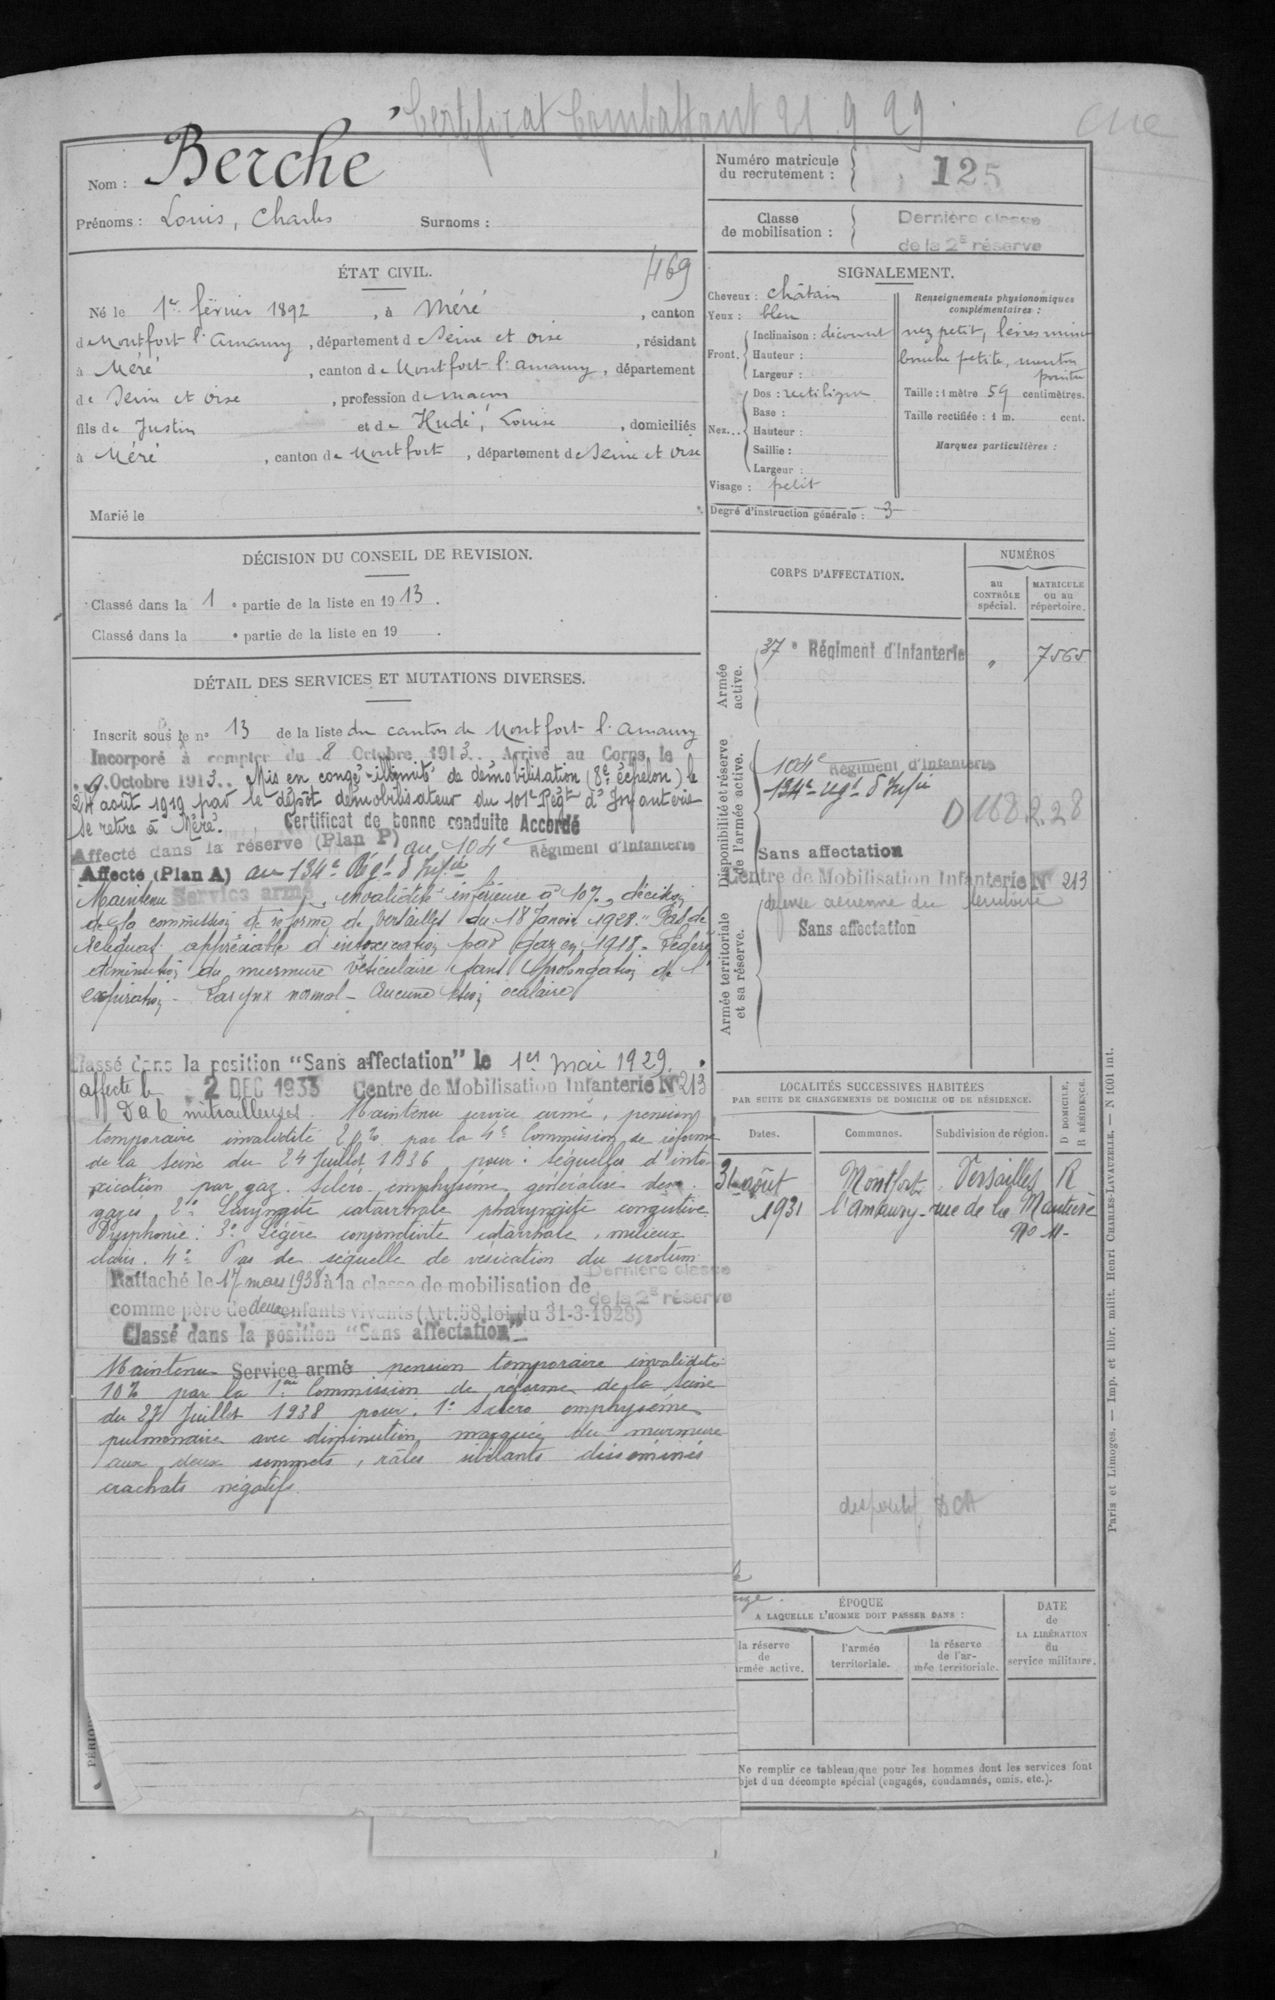 Certificat Combattant 21 9 29
Nom : Berche
Prénoms : Louis, Charles Surnoms :
Numéro matricule
du recrutement : 125
Classe
de mobilisation :
Dernière classe
de la 2e réserve
ÉTAT CIVIL.
469
Né le 1er février 1892, à Méré, canton
de Montfort l'Amaury, département de Seine et Oise, résidant
à Méré, canton de Montfort l'Amaury, département
de Seine et Oise, profession de maçon
fils de Justin et de Hudé, Louise, domiciliés
à Méré, canton de Montfort, département de Seine et Oise
Marié le
SIGNALEMENT.
Cheveux : châtain
Yeux : bleu
Front. Inclinaison : découvert
Hauteur :
Largeur :
Nez... Dos : rectiligne
Base :
Hauteur :
Saillie :
Largeur :
Visage : petit
Renseignements physionomiques
complémentaires :
nez petit, lèvres minces
bouche petite, menton
pointu
Taille : 1 mètre 59 centimètres.
Taille rectifiée : 1 m. cent.
Marques particulières :
Degré d'instruction générale : 3
DÉCISION DU CONSEIL DE REVISION.
Classé dans la 1e partie de la liste en 1913.
Classé dans la e partie de la liste en 19 .
DÉTAIL DES SERVICES ET MUTATIONS DIVERSES.
Inscrit sous le no 13 de la liste du canton de Montfort l'Amaury
Incorporé à compter du 8 Octobre 1913. Arrivé au Corps le
9 Octobre 1913. Mis en congé illimité de démobilisation (8e échelon) le
24 août 1919 par le dépôt démobilisateur du 101e Régt d'Infanterie
se retire à Méré. Certificat de bonne conduite Accordé
Affecté dans la réserve (Plan P) au 104e Régiment d'Infanterie
Affecté (Plan A) au 134e Régt d'Infie
Maintenu Service armé, invalidité inférieure à 10%, décision
de la commission de réforme de Versailles du 18 Janvier 1928. Pas de
séquelles appréciable d'intoxication par gaz en 1918. Légère
diminution du murmure vésiculaire sans prolongation de l'
expiration - Larynx normal - Aucune lésion oculaire
Classé dans la position "Sans affectation" le 1er mai 1929.
affecté le 2 DEC 1933 Centre de Mobilisation Infanterie No 213
mitrailleuses. Maintenu service armé, pension
temporaire invalidité 20% par la 4e Commission de réforme
de la Seine du 24 Juillet 1936 pour : séquelles d'into-
xication par gaz. Scléro emphysème généralisé
2o Laryngite catarrhale pharyngite congestive
Dysphonie. 3o Légère conjonctivite catarrhale, milieux
clairs. 4o Pas de séquelle de vésication du scrotum
Rattaché le 17 mars 1938 à la classe de mobilisation de Dernière classe
de la 2e réserve
comme père de deux enfants vivants (Art. 58 loi du 31-3-1928)
Classé dans la position "Sans affectation"
Maintenu Service armé pension temporaire invalidité
10% par la 1ère Commission de réforme de la Seine
du 27 Juillet 1938 pour. 1o Scléro emphysème
pulmonaire avec diminution marquée du murmure
aux deux sommets, râles sibilants disséminés
crachats négatifs.
CORPS D'AFFECTATION.
NUMÉROS
au
CONTRÔLE
spécial.
MATRICULE
ou au
répertoire.
Armée
active.
37e Régiment d'Infanterie " 7565
Disponibilité et réserve
de l'armée active.
104e Régiment d'Infanterie
134e régt d'Infie
D 168 2.28
Sans affectation
Centre de Mobilisation Infanterie No 213
Armée territoriale
et sa réserve.
défense aérienne du territoire
Sans affectation
LOCALITÉS SUCCESSIVES HABITÉES
PAR SUITE DE CHANGEMENTS DE DOMICILE OU DE RÉSIDENCE.
D DOMICILE,
R RÉSIDENCE.
Dates. Communes. Subdivision de région.
31 août Montfort Versailles R
1931 l'Amaury - rue de la
No 11 -
DCA
ÉPOQUE
A LAQUELLE L'HOMME DOIT PASSER DANS :
la réserve
de
armée active.
l'armée
territoriale.
la réserve
de l'ar-
mée territoriale.
DATE
de
LA LIBÉRATION
du
service militaire.
Ne remplir ce tableau que pour les hommes dont les services font
objet d'un décompte spécial (engagés, condamnés, omis, etc.).
Paris et Limoges. — Imp. et libr. milit. Henri CHARLES-LAVAUZELLE. — N 1001 int.